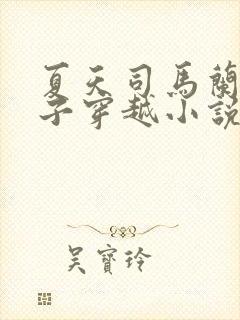 夏天司馬蘭
子穿越小說
吴寶玲